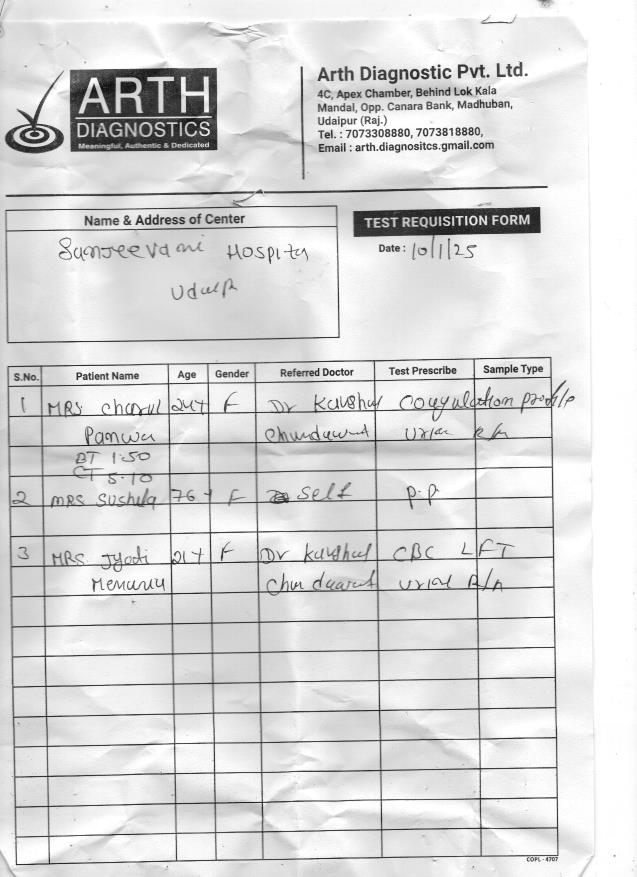 ARTH
DIAGNOSTICS
Meaningful, Authentic & Dedicated
Arth Diagnostic Pvt. Ltd.
4C, Apex Chamber, Behind Lok Kala
Mandal, Opp. Canara Bank, Madhuban,
Udaipur (Raj.)
Tel. : 7073308880, 7073818880,
Email : arth.diagnositcs.gmail.com
Name & Address of Center
TEST REQUISITION FORM
Sanjeevani Hospital
Date : 10/1/25
S.No. Patient Name Age Gender Referred Doctor Test Prescribe Sample Type
1 MRS 24 F Dr Kaushal Coagulation profile
Panwar R/A
BT 1.50
CT 5.10
2 MRS Sushila 76 F Self P.P
3 MRS Jyoti 21 F Dr Kaushal CBC LFT
R/A
COPL - 4707